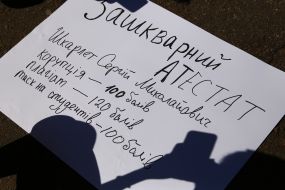 Зашкварний
АТЕСТАТ
Шкарлет Сергій Миколайович
корупція — 100 балів
плагіат — 120 балів
тиск на
студентів — 100 балів